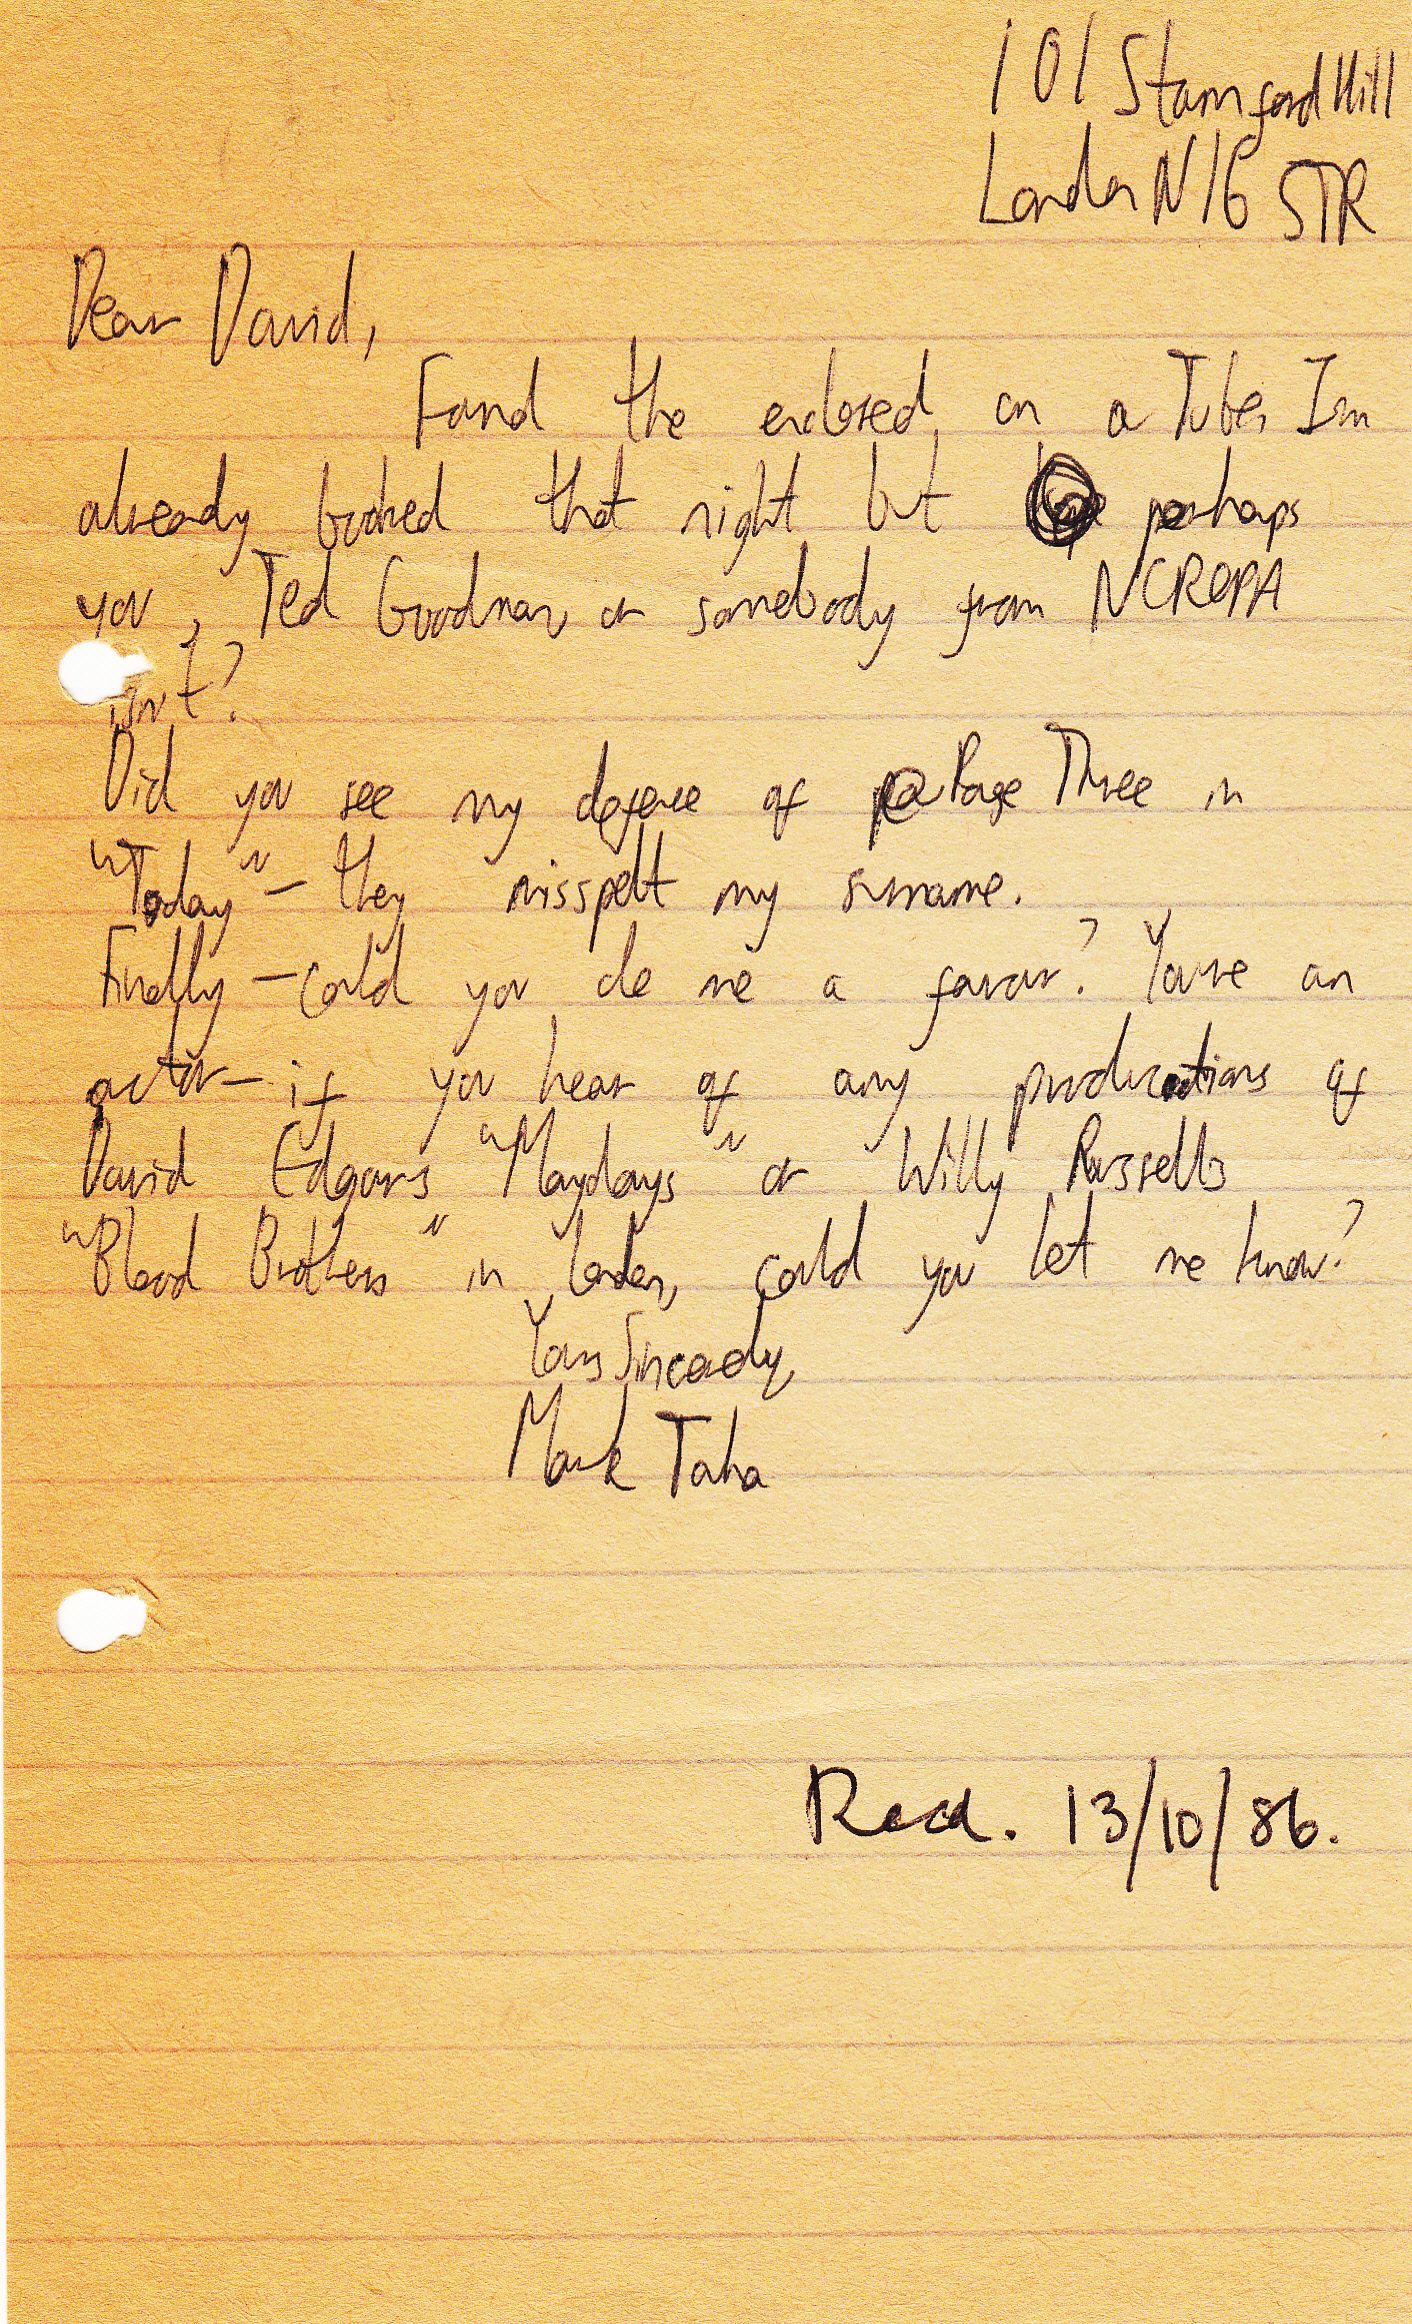 101 Stamford Hill
London N16 5TR
Dear David,
Found the enclosed on a Tube, I'm
already booked that night but perhaps
you, Ted Goodman or somebody from NCROPA
isn't?
Did you see my defence of Page Three in
"Today" – they misspelt my surname.
Finally – could you do me a favour? You're an
actor – if you hear of any productions of
David Edgar's "Maydays" or Willy Russell's
"Blood Brothers" in London, could you let me know?
Yours Sincerely,
Mark Taha
Recd. 13/10/86.